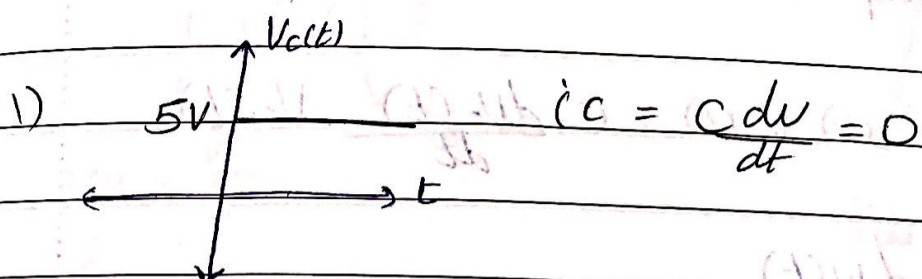 Vc(t)
1) 5V ic = C dv/dt = 0
t